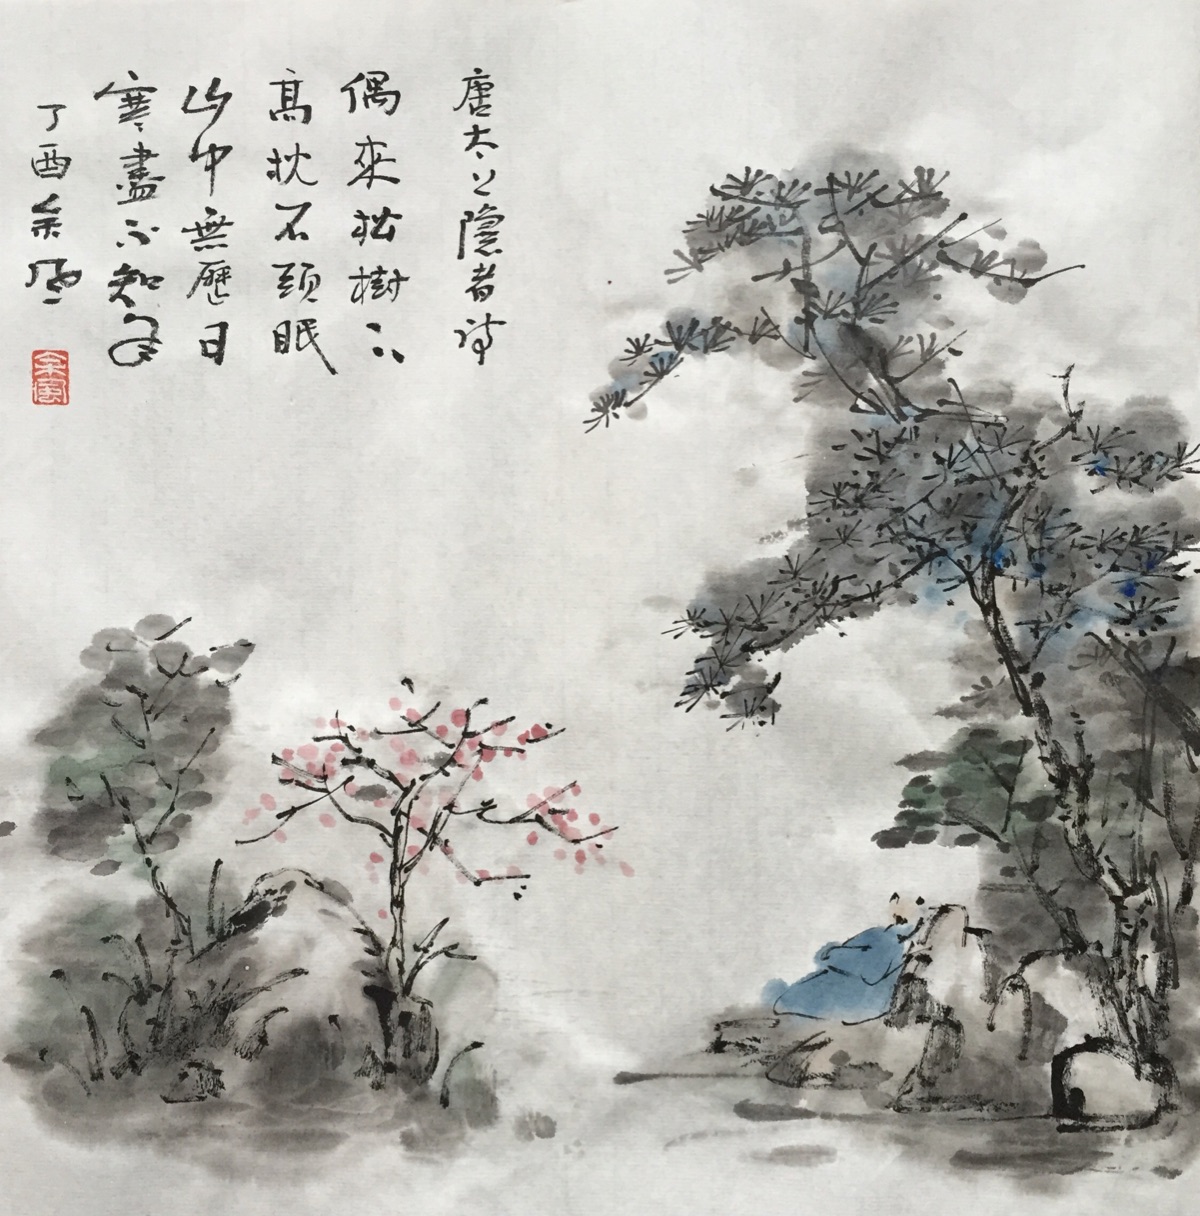 唐太上隱者詩
偶來松樹下
髙枕石頭眠
山中無曆日
寒盡不知年
丁酉余風
余風